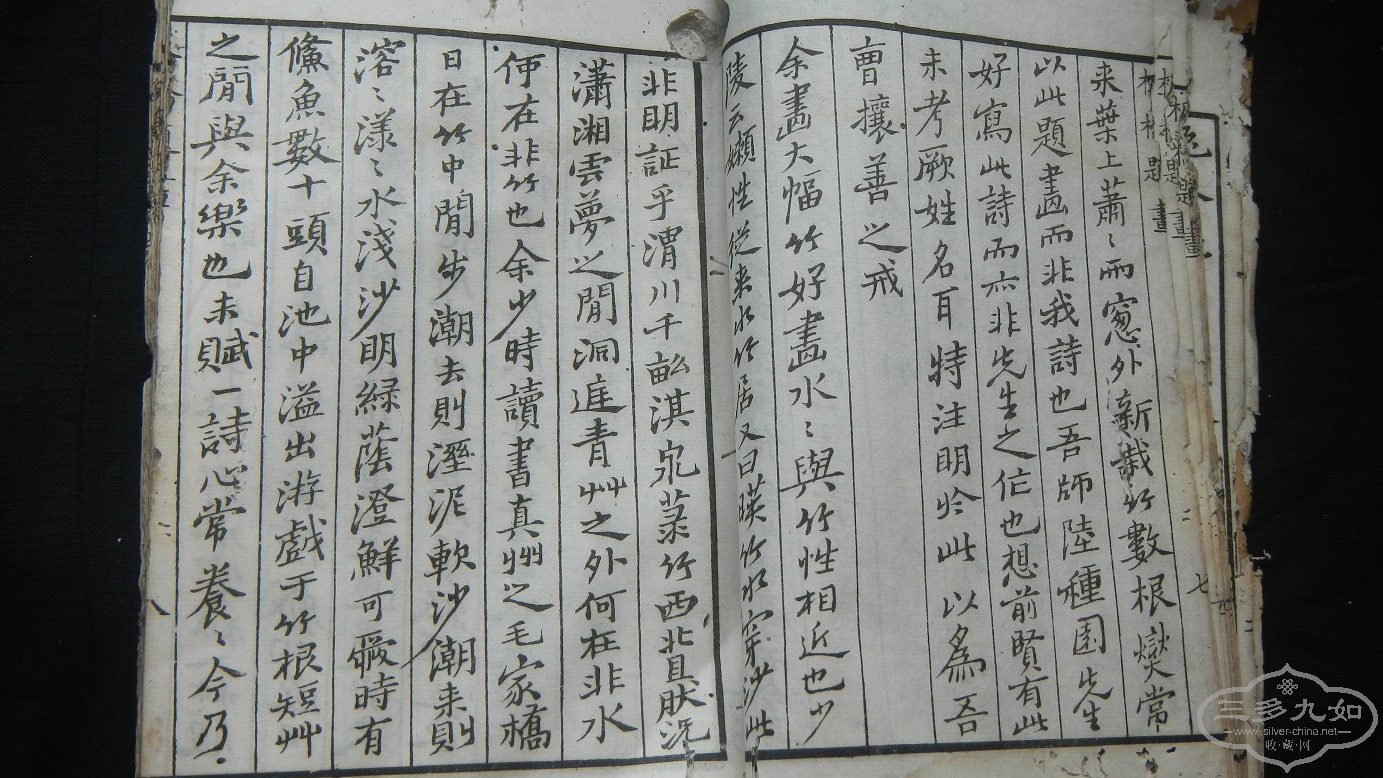 来葉上蕭〻雨窓外新栽竹數根燮常
以此題畫而非我詩也吾師陸種園先生
好寫此詩而亦非先生之作也想前賢有此
未考厥姓名耳特注明於此以為吾
曹攘善之戒
余畫大幅竹好畫水〻與竹性相近也少
陵云嬾性從来水竹居又曰暎竹水穿沙此
非明証乎渭川千畝淇泉菉竹西北且肰況
瀟湘雲夢之間洞庭青艸之外何在非水
何在非竹也余少時讀書真州之毛家橋
日在竹中閒步潮去則溼泥軟沙潮来則
溶〻漾〻水淺沙明緑蔭澄鮮可愛時有
鯈魚數十頭自池中溢出游戲于竹根短艸
之間與余樂也未賦一詩心常養〻今乃
七
八
三多九如
www.silver-china.net
收·藏·网